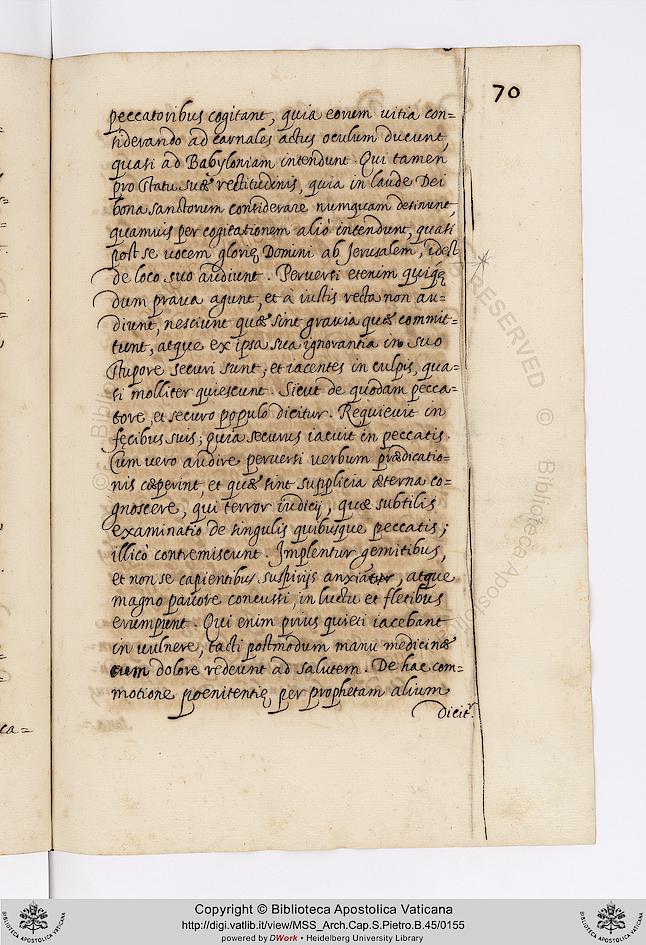 70
peccatoribus cogitant, quia eorum uitia con=
siderando ad carnales actus oculum ducunt,
quasi ad Babyloniam intendunt. Qui tamen
pro statu suæ rectitudinis, quia in laude Dei
bona sanctorum considerare numquam desinunt,
quamuis per cogitationem aliò intendunt, quasi
post se uocem glorię Domini ab Jerusalem, idest
de loco suo audiunt. Peruersi etenim quiqę
dum praua agunt, et à iustis recta non au=
diunt, nesciunt quæ sint grauia quæ commit=
tunt, atque ex ipsa sua ignorantia in suo
stupore securi sunt, et iacentes in culpis, qua=
si molliter quiescunt. Sicut de quodam pecca=
tore, et securo populo dicitur. Requieuit in
fęcibus suis; quia securus iacuit in peccatis.
Cum uero audire peruersi uerbum prædicatio=
nis cæperint, et quæ sint supplicia æterna co=
gnoscere, qui terror iudicij, quæ subtilis
examinatio de singulis quibusque peccatis;
illicò contremiscunt. Implentur gemitibus,
et non se capientibus suspirijs anxiatur, atque
magno pauore concussi, in luctu et fletibus
erumpunt. Qui enim prius quieti iacebant
in uulnere, tacti postmodum manu medicinæ
cum dolore redeunt ad salutem. De hac com=
motione poenitentię per prophetam alium
dicit.
ca=
© Biblioteca Apostolica
RESERVED © Biblioteca Apostolica
Copyright © Biblioteca Apostolica Vaticana
http://digi.vatlib.it/view/MSS_Arch.Cap.S.Pietro.B.45/0155
powered by DWork • Heidelberg University Library